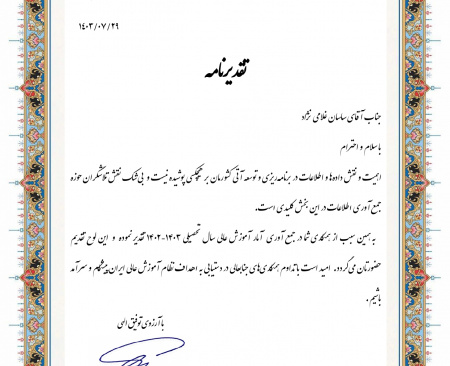 ۱۴۰۳/۰۷/۲۹
تقدیرنامه
جناب آقای ساسان غلامی نژاد
باسلام و احترام
اهمیت و نقش داده‌ها و اطلاعات در برنامه‌ریزی و توسعه آتی کشورمان بر هیچکس پوشیده نیست و بی‌شک نقش تلاشگران حوزه
جمع آوری اطلاعات در این بخش کلیدی است.
به همین سبب از همکاری شما در جمع آوری آمار آموزش عالی سال تحصیلی ۱۴۰۳-۱۴۰۲ تقدیر نموده و این لوح تقدیم
حضورتان می‌گردد. امید است باتداوم همکاری‌های جنابعالی در دستیابی به اهداف نظام آموزش عالی ایران پیشگام و سرآمد
باشیم.
با آرزوی توفیق الهی